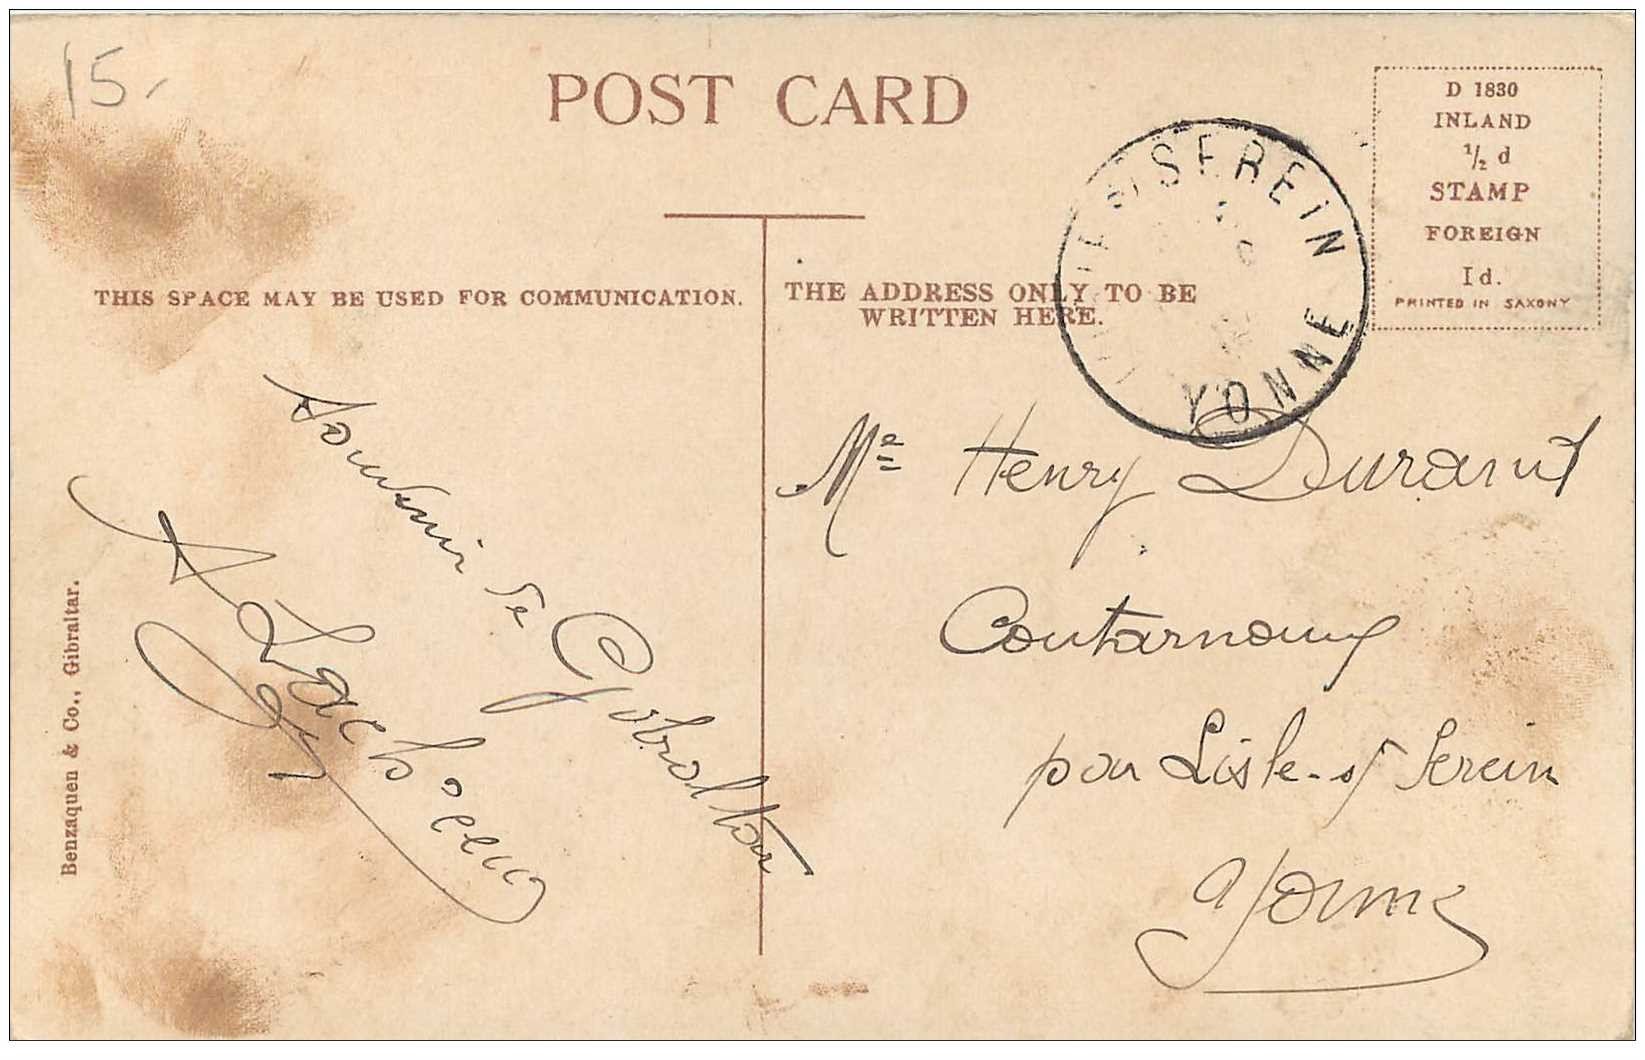 15-
POST CARD
D 1830
INLAND
1/2 d
STAMP
FOREIGN
1d.
PRINTED IN SAXONY
SEREIN
YONNE
THIS SPACE MAY BE USED FOR COMMUNICATION.
THE ADDRESS ONLY TO BE
WRITTEN HERE.
Souvenir de Gibraltar
A
Benzaquen & Co., Gibraltar.
Me Henry Durand
Coutarnoux
par Lisle-s/ Serein
Yonne